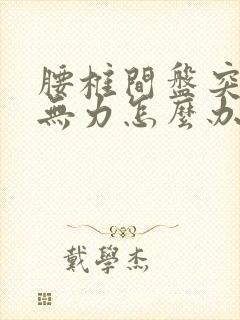 腰柱間盤突
無力怎麼办
戴學杰